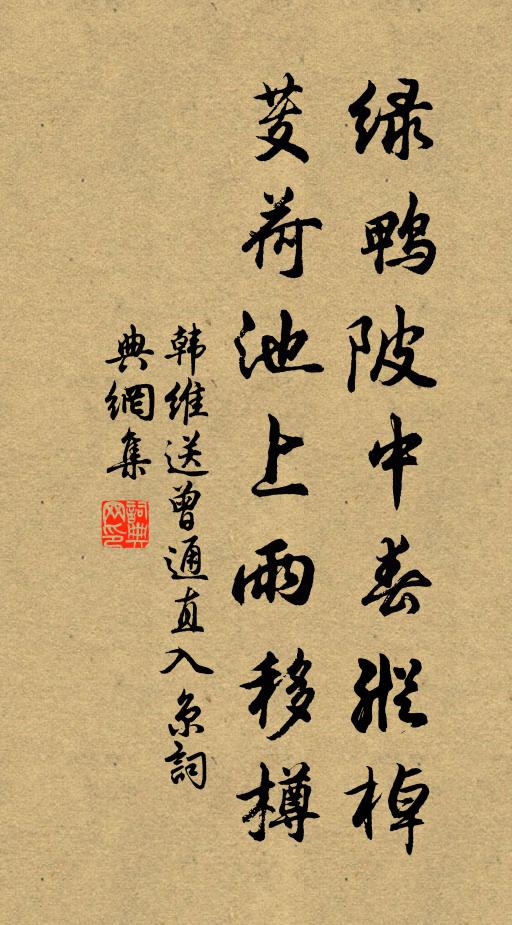 绿鸭陂中春纵棹
芰荷池上雨移樽
韩维送曾通直入京词
典網集
詞典網印